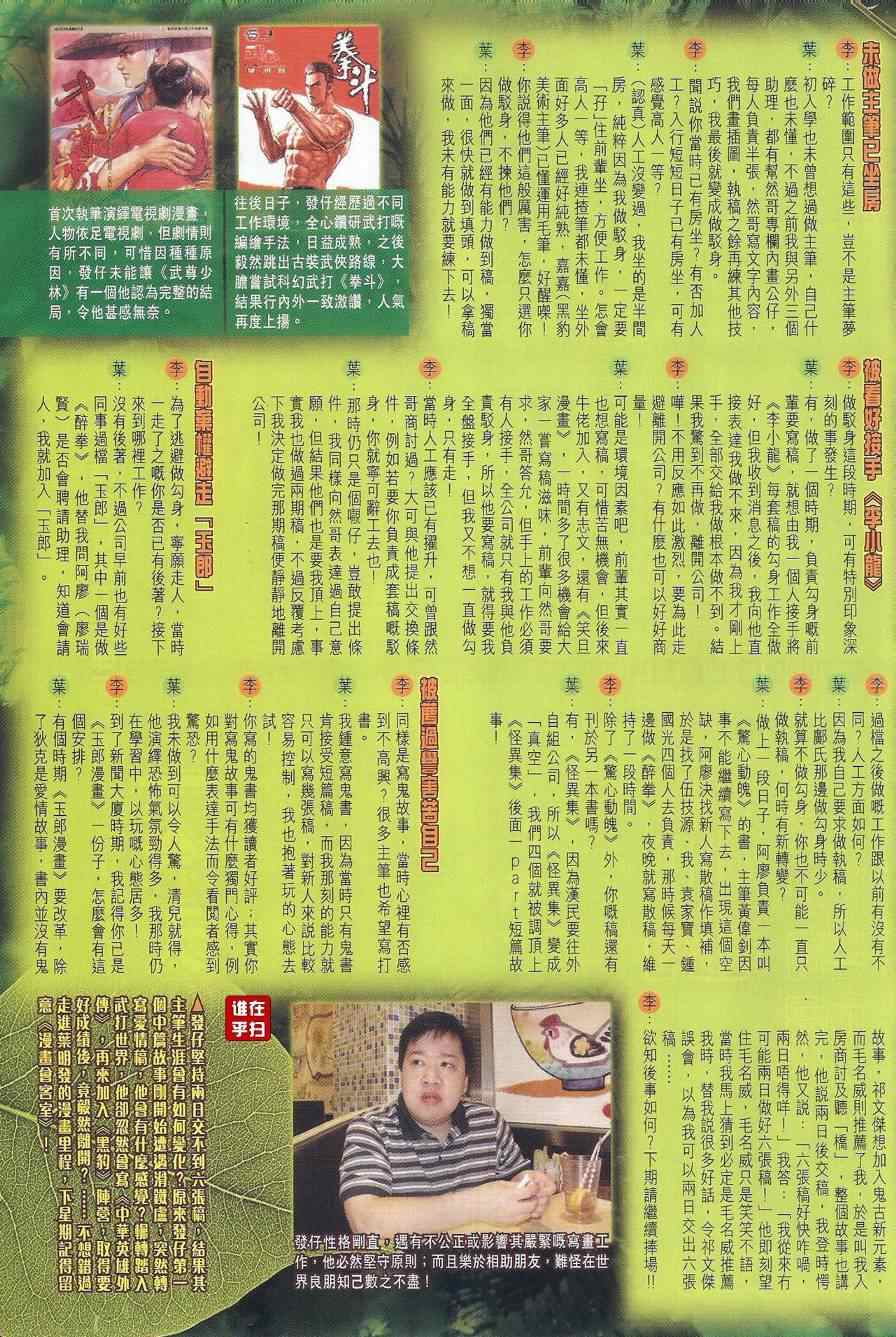 未做主筆已坐房
李：工作範圍只有這些，豈不是主筆夢
碎？
葉：初入學也未曾想過做主筆，自己什
麼也未懂，不過之前我與另外三個
助理，都有幫然哥專欄內畫公仔，
每人負責半張，然哥寫文字內容，
我們畫插圖，執稿之餘再練其他技
巧，我最後就變成做駁身。
李：聞說你當時已有房坐？有否加人
工？入行短短日子已有房坐，可有
感覺高人一等？
葉：（認真）人工沒變過，我坐的是半間
房，純粹因為我做駁身，一定要
「孖」住前輩坐，方便工作。怎會
高人一等，我連揸筆都未懂，坐外
面好多人已經好純熟，嘉嘉（黑豹
美術主筆）已懂運用毛筆，好醒㗎！
李：你說得他們這般厲害，怎麼只選你
做駁身，不揀他們？
葉：因為他們已經有能力做到稿，獨當
一面，很快就做到填頭，可以拿稿
來做，我未有能力就要練下去！
拳斗
往後日子，發仔經歷過不同
工作環境，全心鑽研武打嘅
編繪手法，日益成熟，之後
毅然跳出古裝武俠路線，大
膽嘗試科幻武打《拳斗》，
結果行內外一致激讚，人氣
再度上揚。
首次執筆演繹電視劇漫畫，
人物依足電視劇，但劇情則
有所不同，可惜因種種原
因，發仔未能讓《武尊少
林》有一個他認為完整的結
局，令他甚感無奈。
被看好接手《李小龍》
李：做駁身這段時期，可有特別印象深
刻的事發生？
葉：有，做了一個時期，負責勾身嘅前
輩要寫稿，就想由我一個人接手將
《李小龍》每套稿的勾身工作全做
好，但我收到消息之後，我向他直
接表達我做不來，因為我才剛上
手，全部交給我做根本做不到。結
果我驚到不再做，離開公司！
李：嘩！不用反應如此激烈，要為此走
避離開公司？有什麼也可以好好商
量！
葉：可能是環境因素吧，前輩其實一直
也想寫稿，可惜苦無機會，但後來
牛佬加入，又有志文，還有《笑旦
漫畫》，一時間多了很多機會給大
家一嘗寫稿滋味，前輩向然哥要
求，然哥答允，但手上的工作必須
有人接手，全公司就只有我與他負
責駁身，所以他要寫稿，就得要我
全盤接手，但我又不想一直做勾
身，只有走！
李：當時人工應該已有擢升，可曾跟然
哥商討過？大可與他提出交換條
件，例如若要你負責成套稿嘅駁
身，你就寧可辭工去也！
葉：那時仍只是個𡃁仔，豈敢提出條
件，我同樣向然哥表達過自己意
願，但結果他們也是要我頂上，事
實我也做過兩期稿，不過反覆考慮
下我決定做完那期稿便靜靜地離開
公司！
自動棄權避走「玉郎」
李：為了逃避做勾身，寧願走人，當時
一走了之嘅你是否已有後著？接下
來到哪裡工作？
葉：沒有後著，不過公司早前也有好些
同事過檔「玉郎」，其中一個是做
《醉拳》，他替我問阿廖（廖瑞
賢）是否會聘請助理，知道會請
人，我就加入「玉郎」。
李：過檔之後做嘅工作跟以前有沒有不
同？人工方面如何？
葉：因為我自己要求做執稿，所以人工
比鄺氏那邊做勾身時少。
李：就算不做勾身，你也不可能一直只
做執稿，何時有新轉變？
葉：做上一段日子，阿廖負責一本叫
《驚心動魄》的書，主筆黃偉釗因
事不能繼續寫下去，出現這個空
缺，阿廖決找新人寫散稿作填補，
於是找了伍技源、我、袁家寶、鍾
國光四個人去負責，那時候每天一
邊做《醉拳》，夜晚就寫散稿，維
持了一段時間。
李：除了《驚心動魄》外，你嘅稿還有
刊於另一本書嗎？
葉：有，《怪異集》，因為漢民要往外
自組公司，所以《怪異集》變成
「真空」，我們四個就被調頂上
《怪異集》後面一part短篇故
事！
被舊過要害苦自己
李：同樣是寫鬼故事，當時心裡有否感
到不高興？很多主筆也希望寫打
書。
葉：我鍾意寫鬼書，因為當時只有鬼書
肯接受短篇稿，而我那刻的能力就
只可以寫幾張稿，對新人來說比較
容易控制，我也抱著玩的心態去
試！
李：你寫的鬼書均獲讀者好評；其實你
對寫鬼故事可有什麼獨門心得，例
如用什麼表達手法而令看閱者感到
驚恐？
葉：我未做到可以令人驚，清兒就得，
他演繹恐怖氣氛勁得多，我那時仍
在學習中，以玩嘅心態居多！
李：到了新聞大廈時期，我記得你已是
《玉郎漫畫》一份子，怎麼會有這
個安排？
葉：有個時期《玉郎漫畫》要改革，除
了狄克是愛情故事，書內並沒有鬼
故事，祁文傑想加入鬼古新元素，
而毛名威則推薦了我，於是叫我入
房商討及聽「橋」，整個故事也講
完，他說兩日後交稿，我登時愕
然，他又說：「六張稿好快咋喎，
兩日唔得咩！」我答：「我從來冇
可能兩日做好六張稿！」他即刻望
住毛名威，毛名威只是笑笑不語，
當時我馬上猜到必定是毛名威推薦
我時，替我說很多好話，令祁文傑
誤會，以為我可以兩日交出六張
稿……
李：欲知後事如何？下期請繼續捧場！！
發仔性格剛直，遇有不公正或影響其嚴緊嘅寫畫工
作，他必然堅守原則；而且樂於相助朋友，難怪在世
界良朋知己數之不盡！
▲發仔堅持兩日交不到六張稿，結果其
主筆生涯會有如何變化？原來發仔第一
個中篇故事剛開始遭遇滑鐵盧，突然轉
寫愛情稿，他會有什麼感覺？輾轉踏入
武打世界，他卻忽然會寫《中華英雄外
傳》，再來加入《黑豹》陣營，取得要
好成績後，竟毅然離開？……不想錯過
走進葉明發的漫畫里程，下星期記得留
意《漫畫會客室》！
谁在
乎扫